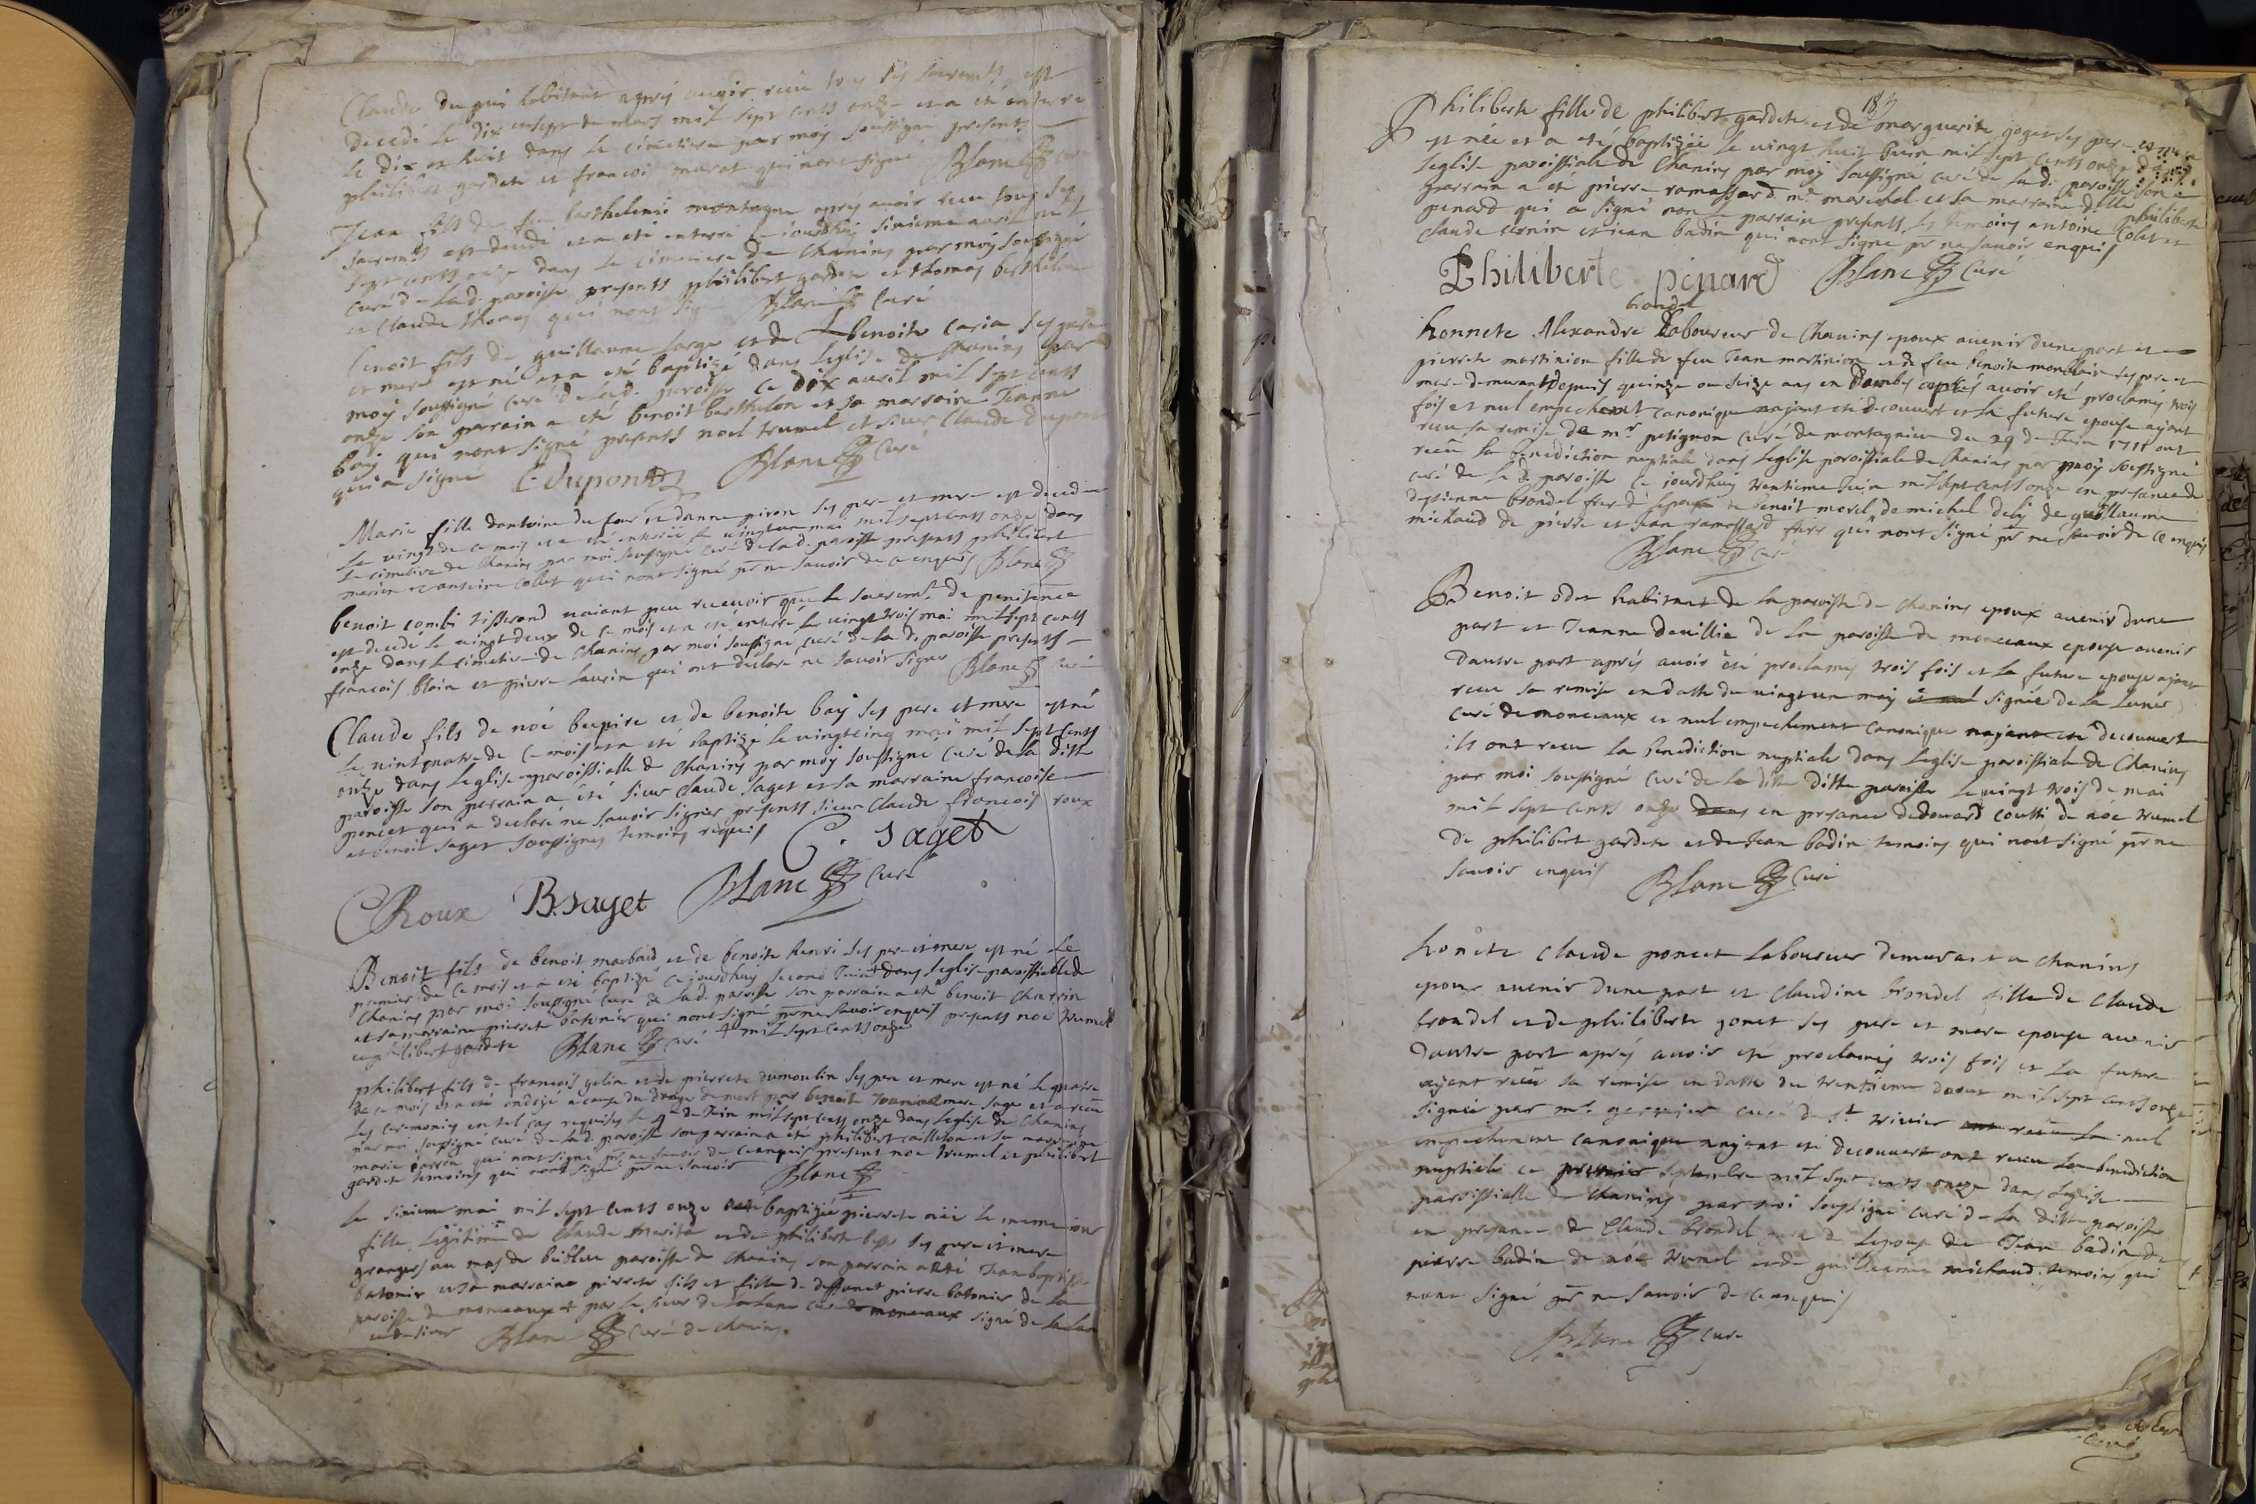 Claude du puis habitant apres avoir receu tous ses sacrements est
decedé le dix et sept de mars mil sept cents onze et a eté enterré
le dix et huit dans le cimetiere par moy soussigné presents
philibert gardete et francois murat qui nont signé Blanc curé
Jean fils de feu barthelemie montagne apres avoir receu tous ses
sacremts est decedé et a eté enterré ce iourdhuy sixieme avril mil
sept cents onze dans le cimetiere de Chanins par moy soussigné
curé de lad. paroisse presents philibert gardete et thomas berthelon
et Claude thomas qui nont sig Blanc Curé
benoit fils de guillaume large et de benoite caria ses pere
et mere est né et a eté baptizé dans leglise de Chanins par
moy soussigné curé de lad. paroisse le dix avril mil sept cents
onze son parrain a eté benoit berthelon et sa marraine Jeanne
bay qui nont signé presents noel trumel et sieur Claude dupont
qui a signé C. dupont Blanc Curé
Marie fille dantoine du four et danne piron ses pere et mere est decedee
le vingt de ce mois et a eté enterrée le vingt un mai mil sept cents onze dans
le cimetiere de Chanins par moi soussigné curé de lad. paroisse presents philibert
et antoine Collet qui nont signé pr ne savoir de ce enquis Blanc
benoit combi tisserand naiant peu recevoir que le sacremt de penitence
est decedé le vingt deux de ce mois et a eté enterré le vingt trois mai mil sept cents
onze dans le cimetiere de Chanins par moi soussigné curé de la d. paroisse presents
francois blain et pierre laurin qui ont declaré ne savoir signer Blanc curé
Claude fils de noé bupire et de benoite bay ses pere et mere est né
le vint quatre de ce mois et a eté baptizé le vingt cinq mai mil sept cents
onze dans leglise paroissialle de Chanins par moy soussigné curé de la ditte
paroisse son parrain a eté sieur Claude Saget et sa marraine francoise
poncet qui a declaré ne savoir signer presents sieur Claude francois roux
et benoit Saget soussignes temoins requis C. Saget
CRoux B. saget Blanc Curé
Benoit fils de benoit marbaud et de benoite henri ses pere et mere est né le
premier de ce mois et a eté baptizé ce jourdhuy second Juin + dans leglise paroissialle de
Chanins par moi soussigné curé de lad. paroisse son parrain a eté benoit Charrin
et sa marraine pierrete batonier qui nont signé pr ne savoir enquis presents noé trumel
et philibert gardete Blanc curé + mil sept cents onze
philibert fils de francois gelin et de pierrete dumoulin ses pere et mere est né le quatre
de ce mois et a eté ondoyé a cause du danger de mort par benoite mere sage et a receu
les ceremonies en tel cas requises le de Juin mil sept cents onze dans leglise de Chanins
par moi soussigné curé de lad. paroisse son parrain a eté philibert cailleton et sa marraine
marie qui nont signé pr ne savoir de ce enquis present noé trumel et philibert
gardete temoins qui nont signé pr ne savoir Blanc
le sixieme mai mil sept cents onze baptizée pierrete née le meme iour
fille legitime de Claude et de philiberte ses pere et mere
grangers au mas de paroisse de Chanins son parrain a eté Jean baptiste
batonier et sa marraine pierrete fils et fille de deffunct pierre batonier de la
paroisse de monceaux + par le sieur de la lune curé de monceaux signé de la lune
Blanc Curé de Chanins.
183
Philiberte fille de philibert gardete et de marguerite goget ses pere et mere
est née et a eté baptizée le vingt huit Juin mil sept cents onze dans
leglise paroissiale de Chanins par moy soussigné curé de lad. paroisse son
parrain a eté pierre ramassard me marechal et sa marraine dlle philiberte
penard qui a signé non le parrain presents les temoins antoine Colet et
Claude et jean badin qui nont signé pr ne savoir enquis
Philiberte penard Blanc Curé
brondel
honnete Alexandre laboureur de Chanins epoux avenir dune part et
pierrete martinion fille de feu Jean martinion et de feu benoite ses pere et
mere demurant depuis quinze ou seize ans en dombes apres avoir eté proclamés trois
fois et nul empechemt canonique najant eté decouvert et la future epouse ajant
receu sa remise de mr petignon curé de montagnieu du 29 de Juin 1711 ont
receu la benediction nuptiale dans leglise paroissiale de Chanins par moy soussigné
curé de la d. paroisse ce jourdhuy trentieme Juin mil sept cents onze en presance de
detienne brondel frere de lepoux de benoit morel de michel de guillaume
michaud de pierre et jean ramassard freres qui nont signé pr ne savoir de ce enquis
Blanc curé
Benoit odet habitant de la paroisse de Chanins epoux avenir dune
part et Jeanne deuillie de la paroisse de monceaux epouse avenir
dautre part aprés avoir eté proclamés trois fois et la future epouse ajant
receu sa remise en datte du vingt un may et nul signée de la lune
curé de monceaux et nul empechement canonique najant eté decouvert
ils ont receu la benediction nuptiale dans leglise paroissiale de Chanins
par moi soussigné curé de la ditte ditte paroisse le vingt trois de mai
mil sept cents onze dans en presance dedouard coutti de noé trumel
de philibert gardete et de Jean badin temoins qui nont signé pr ne
savoir enquis Blanc Curé
honete Claude poncet laboureur demurant a Chanins
epoux avenir dune part et Claudine brondel fille de Claude
brondel et de philiberte gonet ses pere et mere epouse avenir
dautre part aprés avoir eté proclamés trois fois et la future
ajant receu sa remise en datte du trentieme daout mil sept cents onze
signée par mr curé de st trivier ont receu la nul
empechement canonique najant eté decouvert ont receu la benediction
nuptiale ce premier septembre mil sept cents onze dans leglise
paroissialle de Chanins par moi soussigné curé de la ditte paroisse
en presance de Claude brondel pere de lepouse de Jean badin de
pierre badin de noé trumel et de guillaume michaud temoins qui
nont signé pr ne savoir de ce enquis
Blanc curé